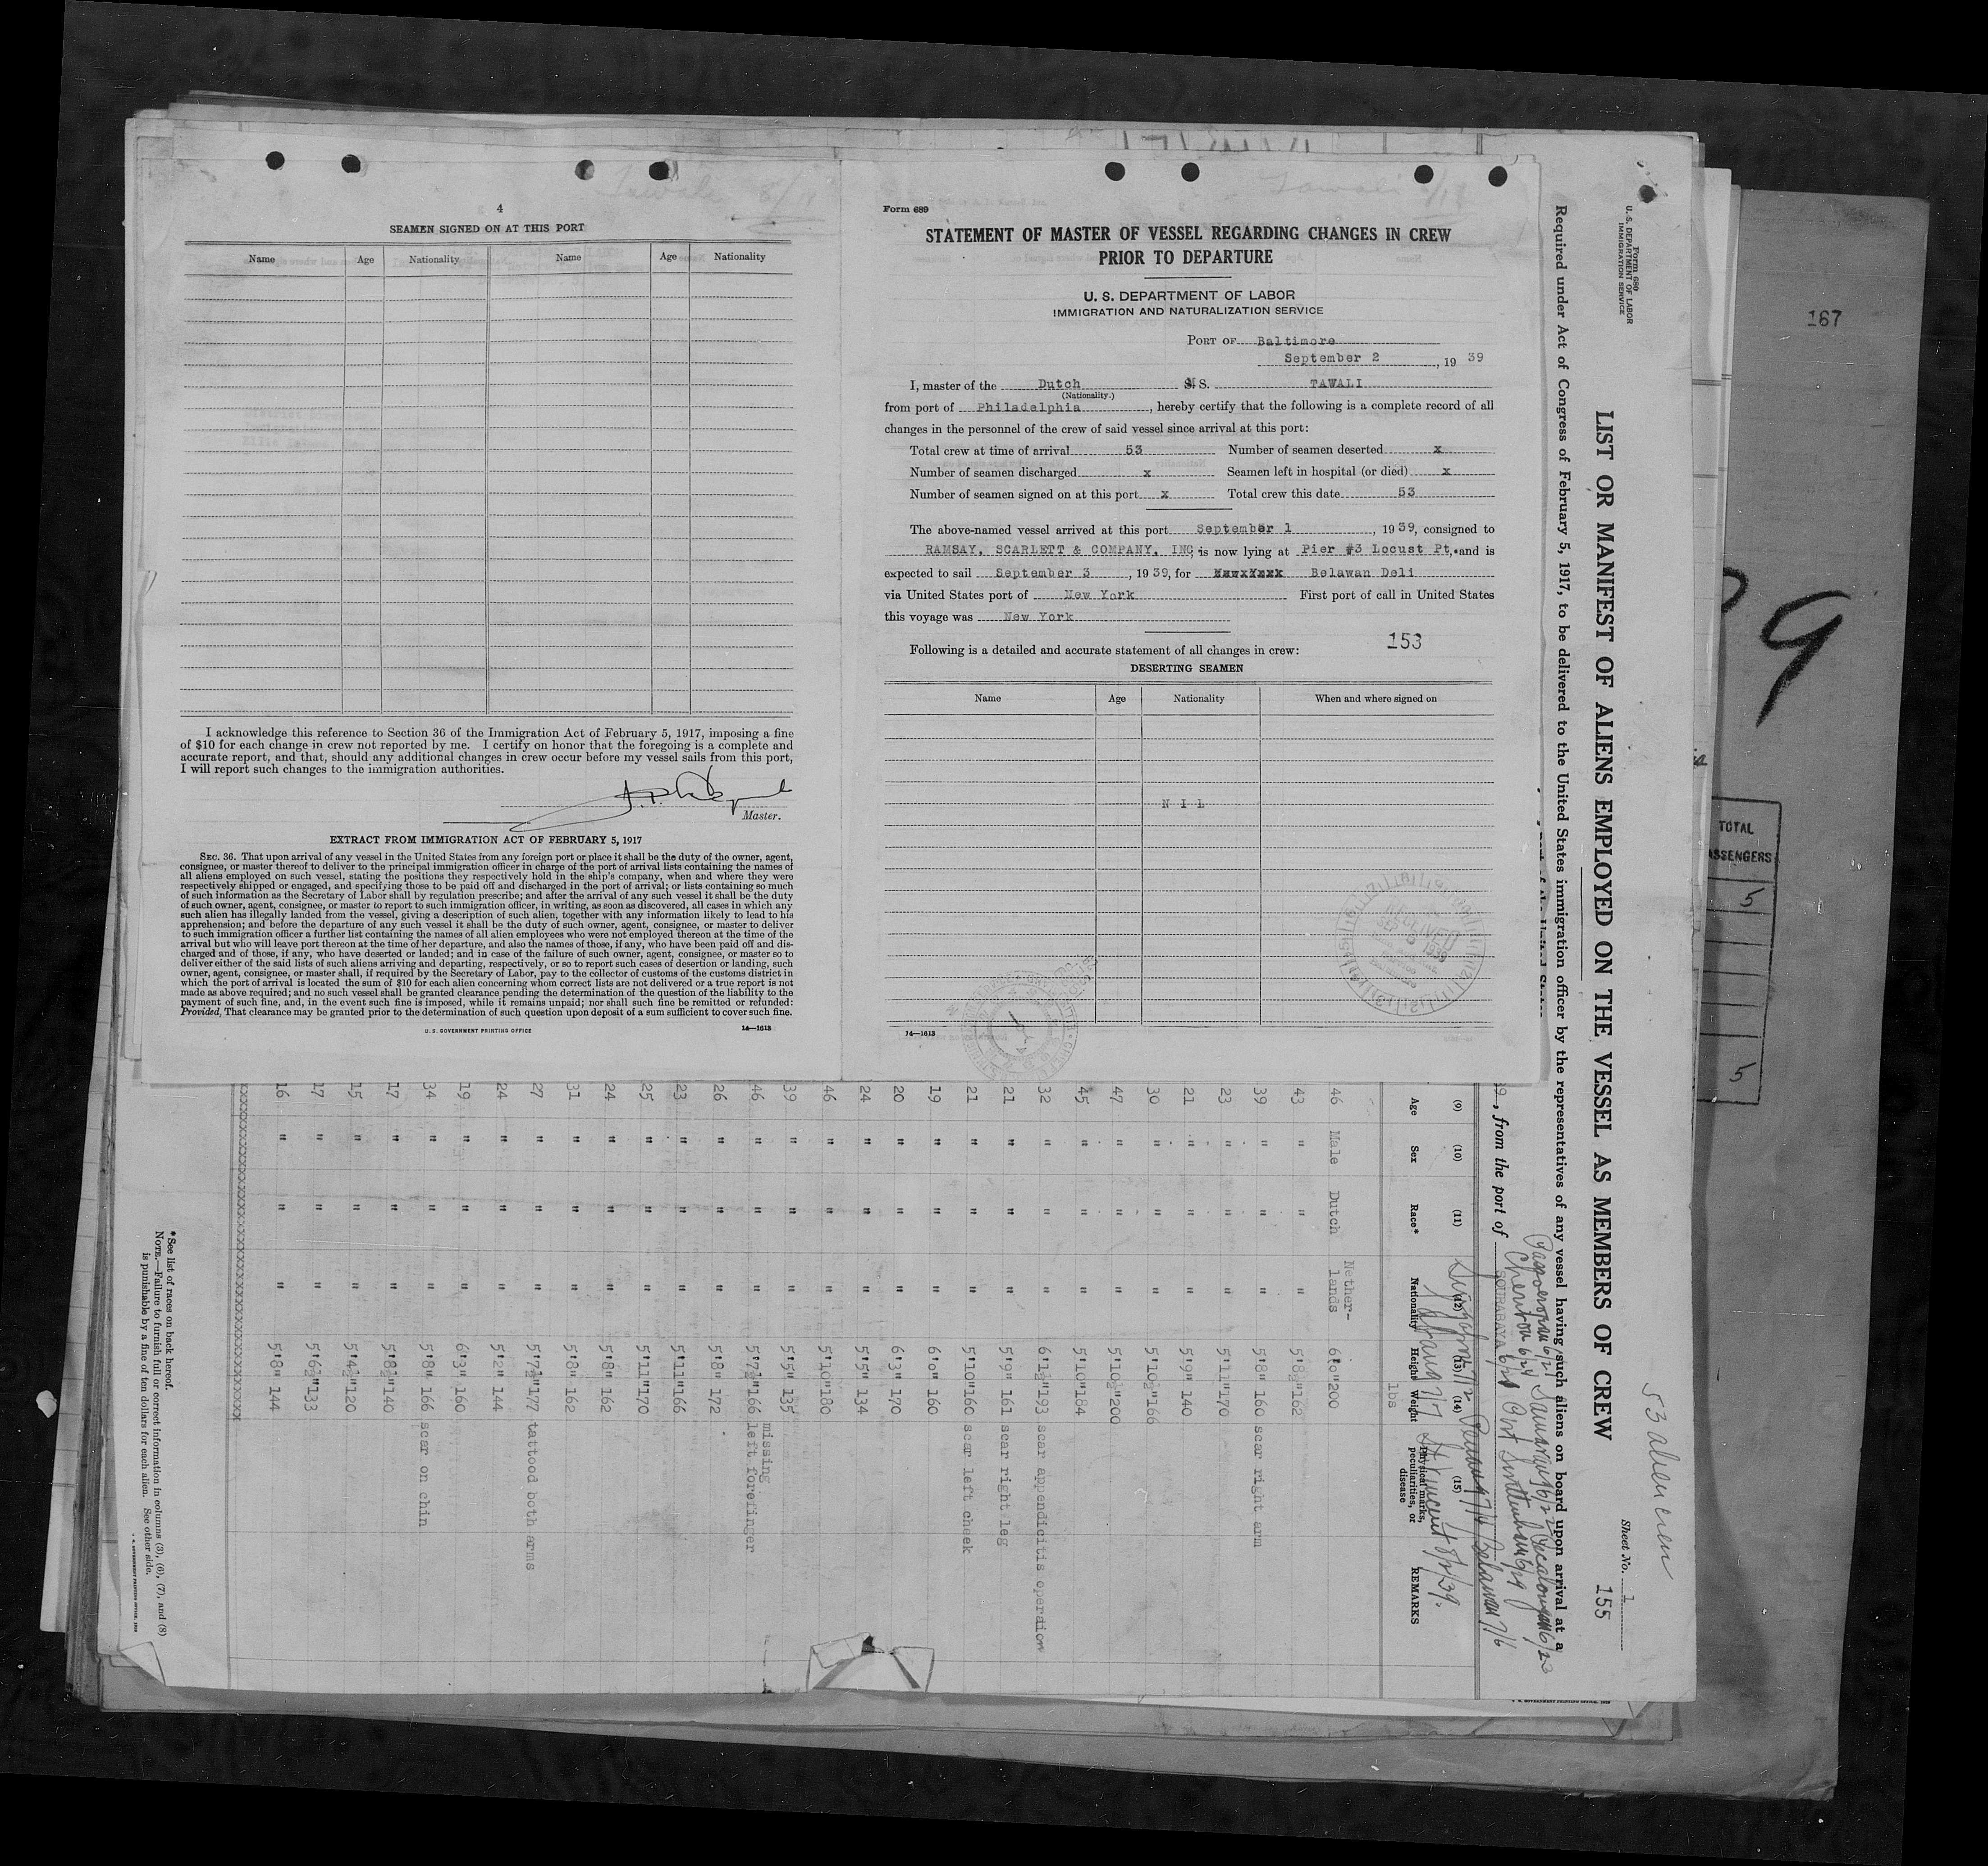 4
SEAMEN SIGNED ON AT THIS PORT
Name Age Nationality Name Age Nationality
I acknowledge this reference to Section 36 of the Immigration Act of February 5, 1917, imposing a fine
of $10 for each change in crew not reported by me. I certify on honor that the foregoing is a complete and
accurate report, and that, should any additional changes in crew occur before my vessel sails from this port,
I will report such changes to the immigration authorities.
Master.
EXTRACT FROM IMMIGRATION ACT OF FEBRUARY 5, 1917
SEC. 36. That upon arrival of any vessel in the United States from any foreign port or place it shall be the duty of the owner, agent,
consignee, or master thereof to deliver to the principal immigration officer in charge of the port of arrival lists containing the names of
all aliens employed on such vessel, stating the positions they respectively hold in the ship's company, when and where they were
respectively shipped or engaged, and specifying those to be paid off and discharged in the port of arrival; or lists containing so much
of such information as the Secretary of Labor shall by regulation prescribe; and after the arrival of any such vessel it shall be the duty
of such owner, agent, consignee, or master to report to such immigration officer, in writing, as soon as discovered, all cases in which any
such alien has illegally landed from the vessel, giving a description of such alien, together with any information likely to lead to his
apprehension; and before the departure of any such vessel it shall be the duty of such owner, agent, consignee, or master to deliver
to such immigration officer a further list containing the names of all alien employees who were not employed thereon at the time of the
arrival but who will leave port thereon at the time of her departure, and also the names of those, if any, who have been paid off and dis-
charged and of those, if any, who have deserted or landed; and in case of the failure of such owner, agent, consignee, or master so to
deliver either of the said lists of such aliens arriving and departing, respectively, or so to report such cases of desertion or landing, such
owner, agent, consignee, or master shall, if required by the Secretary of Labor, pay to the collector of customs of the customs district in
which the port of arrival is located the sum of $10 for each alien concerning whom correct lists are not delivered or a true report is not
made as above required; and no such vessel shall be granted clearance pending the determination of the question of the liability to the
payment of such fine, and, in the event such fine is imposed, while it remains unpaid; nor shall such fine be remitted or refunded:
Provided, That clearance may be granted prior to the determination of such question upon deposit of a sum sufficient to cover such fine.
U. S. GOVERNMENT PRINTING OFFICE 14—1613
Form 689
STATEMENT OF MASTER OF VESSEL REGARDING CHANGES IN CREW
PRIOR TO DEPARTURE
U. S. DEPARTMENT OF LABOR
IMMIGRATION AND NATURALIZATION SERVICE
PORT OF Baltimore
September 2, 19 39
I, master of the Dutch S. TAWALI
(Nationality.)
from port of Philadelphia, hereby certify that the following is a complete record of all
changes in the personnel of the crew of said vessel since arrival at this port:
Total crew at time of arrival 53 Number of seamen deserted x
Number of seamen discharged x Seamen left in hospital (or died) x
Number of seamen signed on at this port x Total crew this date 53
The above-named vessel arrived at this port September 1, 1939, consigned to
RAMSAY, SCARLETT & COMPANY, INC is now lying at Pier #3 Locust Pt, and is
expected to sail September 3, 1939, for Belawan Deli
via United States port of New York First port of call in United States
this voyage was New York
153
Following is a detailed and accurate statement of all changes in crew:
DESERTING SEAMEN
Name Age Nationality When and where signed on
N I L
14—1613
167
9
TOTAL
5
5
53 alien crew
Form 689
U. S. DEPARTMENT OF LABOR
IMMIGRATION SERVICE
Sheet No. 1
155
LIST OR MANIFEST OF ALIENS EMPLOYED ON THE VESSEL AS MEMBERS OF CREW
Required under Act of Congress of February 5, 1917, to be delivered to the United States immigration officer by the representatives of any vessel having such aliens on board upon arrival at a
, from the port of SOURABAYA
(9) (10) (11) (12) (13) (14) (15)
Age Sex Race* Nationality Height Weight Physical marks, peculiarities, or disease REMARKS
lbs
46 Male Dutch Nether-lands 6'0" 200
43 " " " 5'8½" 162
39 " " " 5'8" 160 scar right arm
23 " " " 5'11" 170
21 " " " 5'9" 140
30 " " " 5'10½" 166
47 " " " 5'10½" 200
45 " " " 5'10" 184
32 " " " 6'1½" 193 scar appendicitis operation
21 " " " 5'9" 161 scar right leg
21 " " " 5'10" 160 scar left cheek
19 " " " 6'0" 160
20 " " " 6'3" 170
24 " " " 5'5" 134
46 " " " 5'10" 180
39 " " " 5'5" 135
46 " " " 5'7½" 166 missing left forefinger
26 " " " 5'8" 172
23 " " " 5'11" 166
25 " " " 5'11" 170
24 " " " 5'8" 162
31 " " " 5'8" 162
27 " " " 5'7½" 177 tattood both arms
24 " " " 5'2" 144
19 " " " 6'3" 160
34 " " " 5'8" 166 scar on chin
17 " " " 5'8½" 140
15 " " " 5'4½" 120
17 " " " 5'6½" 133
16 " " " 5'8" 144
*See list of races on back hereof.
NOTE.—Failure to furnish full or correct information in columns (3), (6), (7), and (8)
is punishable by a fine of ten dollars for each alien. See other side.